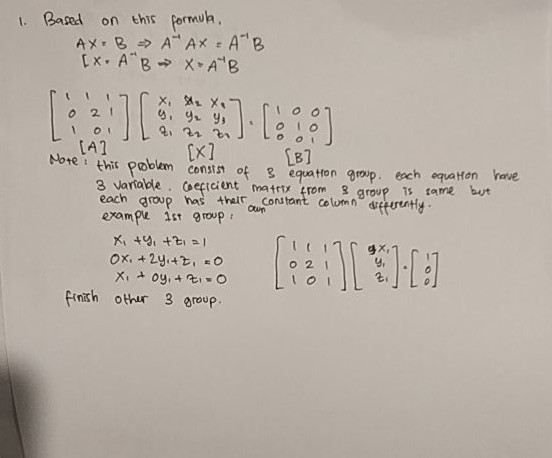 1. Based on this formula,
AX = B ⇒ A⁻¹ AX = A⁻¹ B
IX = A⁻¹ B ⇒ X = A⁻¹ B
[1 1 1; 0 2 1; 1 0 1] [x₁ x₂ x₃; y₁ y₂ y₃; z₁ z₂ z₃] = [1 0 0; 0 1 0; 0 0 1]
[A] [X] [B]
Note: this problem consist of 3 equation group. each equation have
3 variable. Coeficient matrix from 3 group is same but
each group has their own constant column differently.
example 1st group:
x₁ + y₁ + z₁ = 1
0x₁ + 2y₁ + z₁ = 0
x₁ + 0y₁ + z₁ = 0
[1 1 1; 0 2 1; 1 0 1] [x₁; y₁; z₁] = [1; 0; 0]
finish other 3 group.